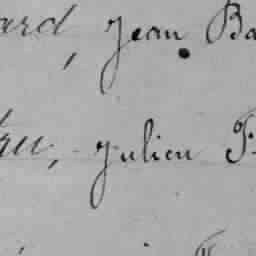 ard, Jean Ba
au, Julien F